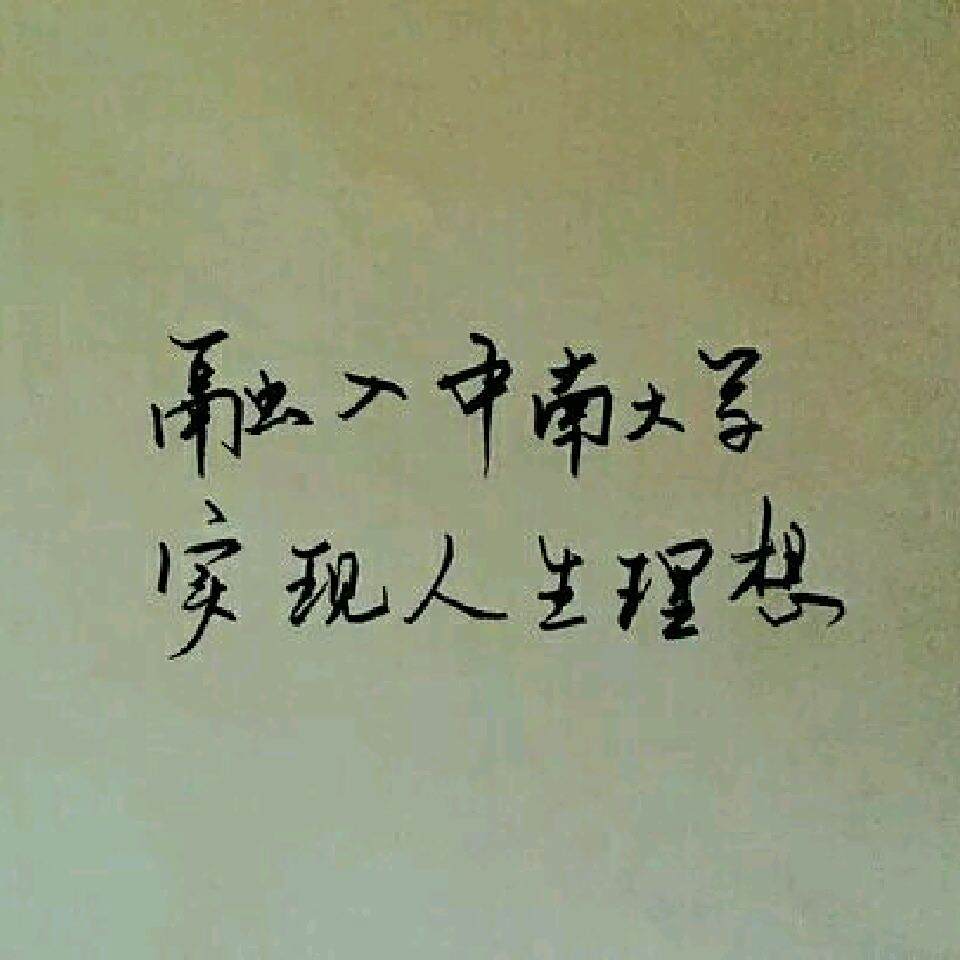 融入中南大学
实现人生理想